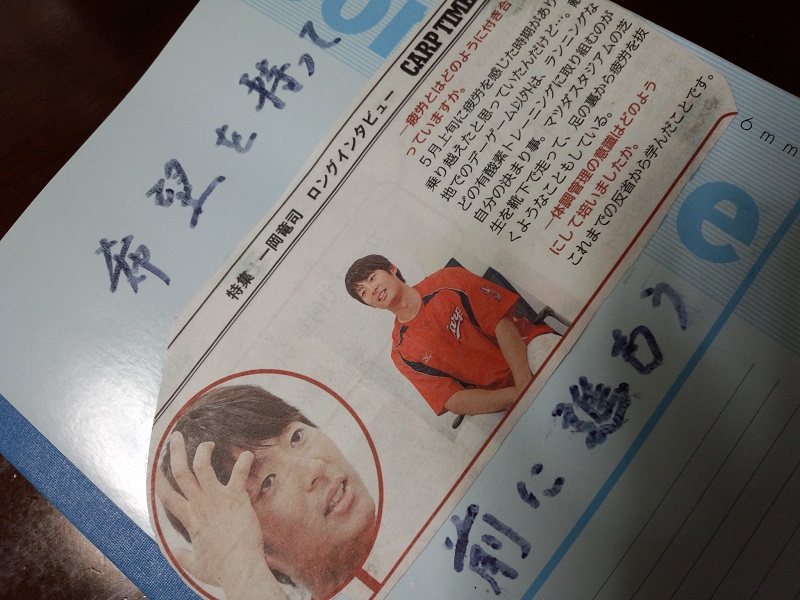 希望を持って
特集 一岡竜司 ロングインタビュー CARP TIME
―疲労とはどのように付き合
っていますか。
5月上旬に疲労を感じた時期があり
乗り越えたと思っていたんだけど…。敵
地でのデーゲーム以外は、ランニングな
どの有酸素トレーニングに取り組むのが
自分の決まり事。マツダスタジアムの芝
生を靴下で走って、足の裏から疲労を抜
くようなこともしている。
―体調管理の意識はどのよう
にして培いましたか。
これまでの反省から学んだことです。
6mm
e
前に進もう